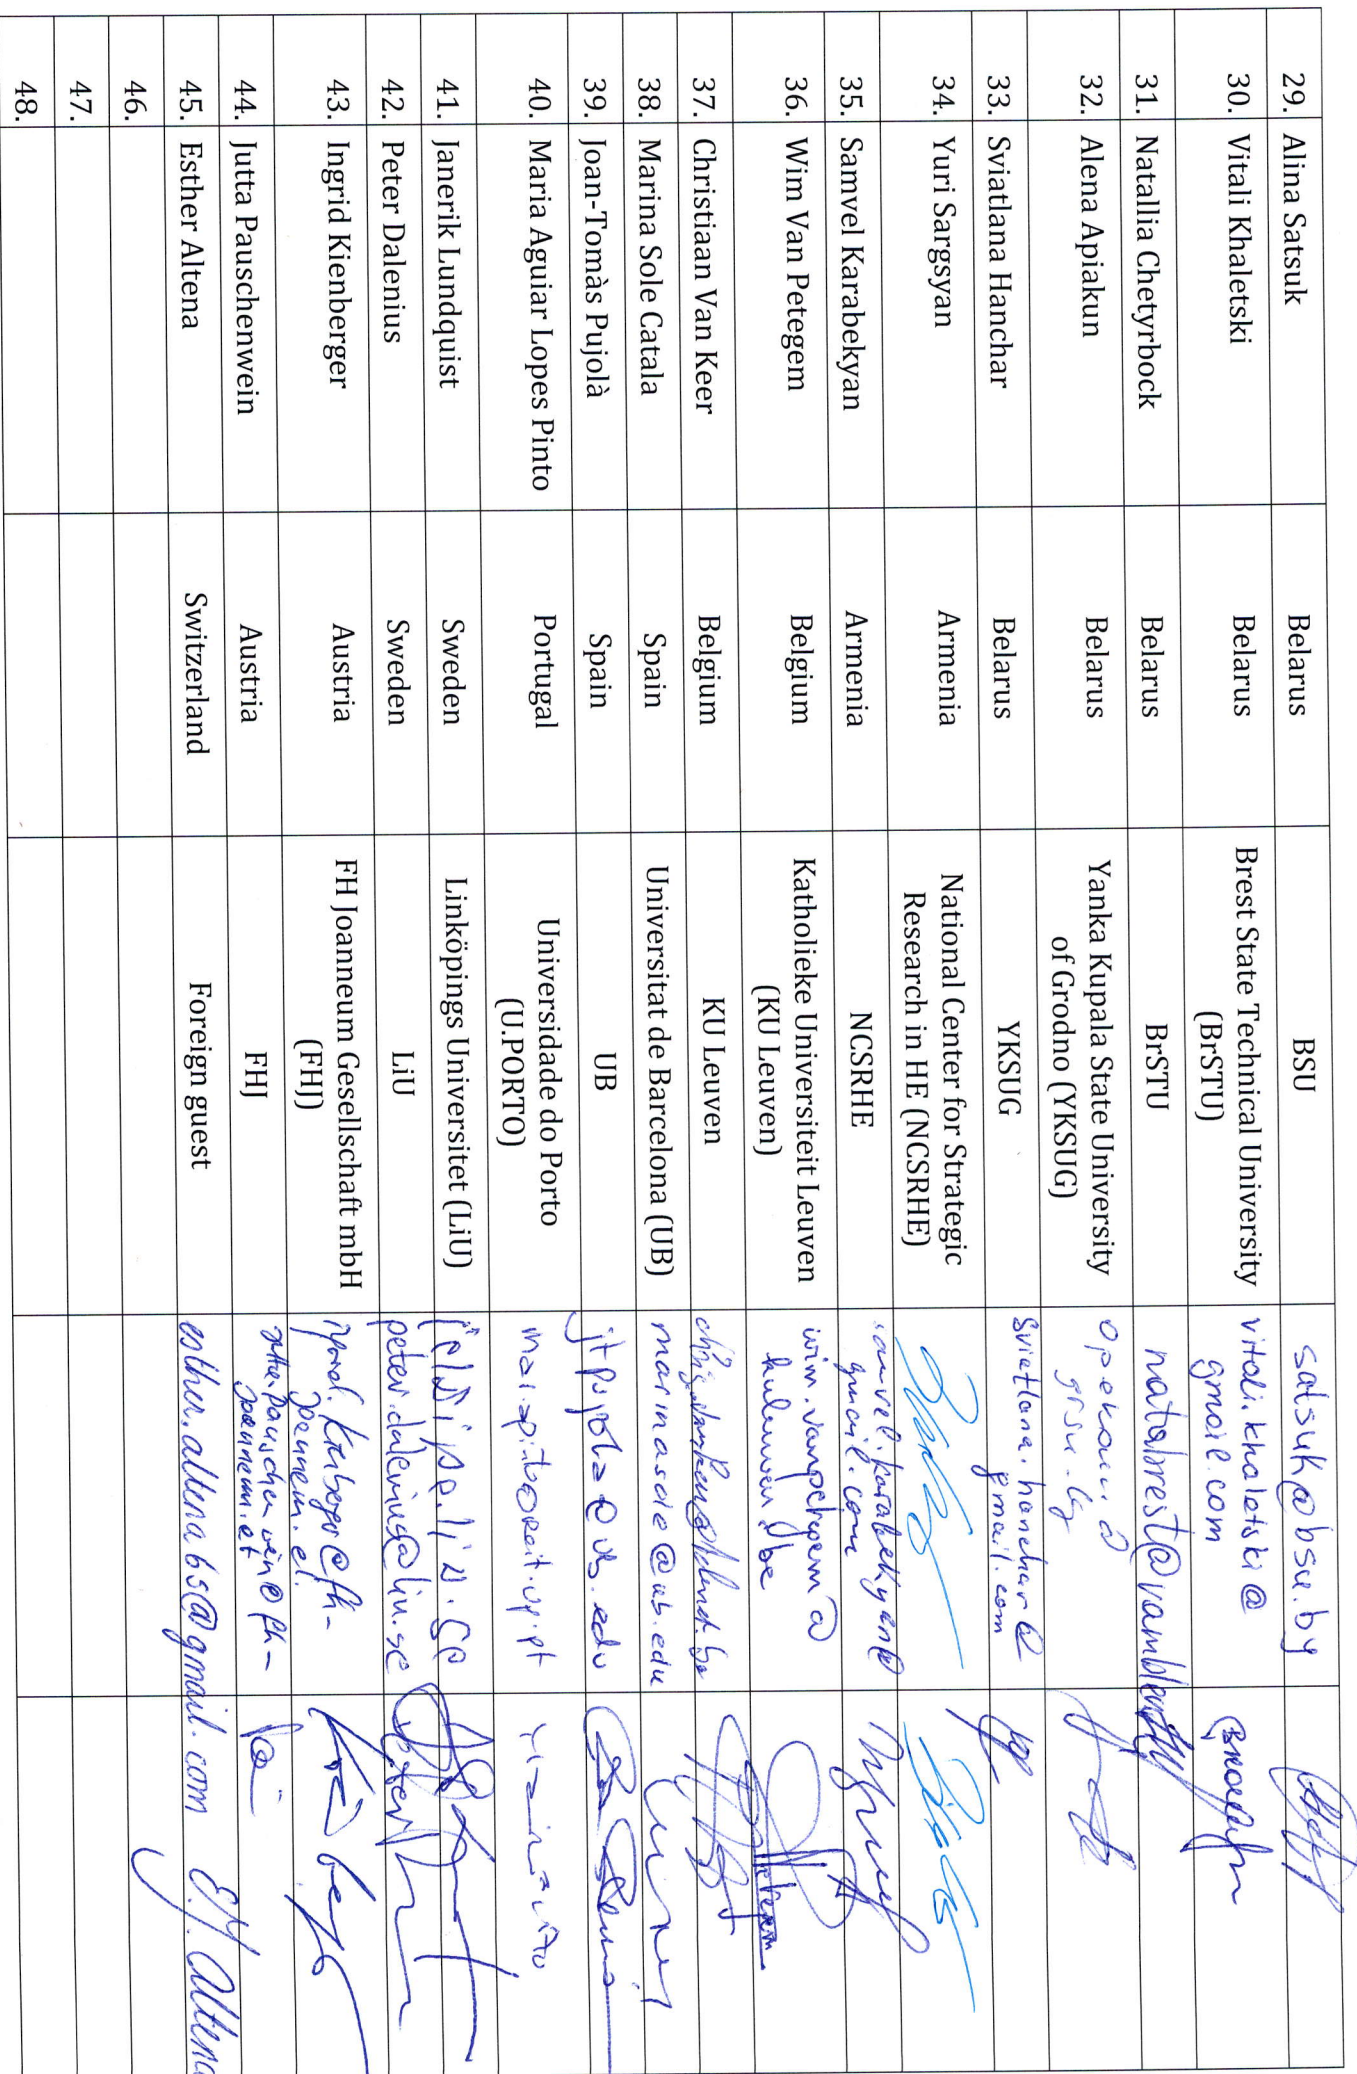 29. Alina Satsuk Belarus BSU satsuk@bsu.by
30. Vitali Khaletski Belarus Brest State Technical University vitali.khaletski@
(BrSTU) gmail.com
31. Natallia Chetyrbock Belarus BrSTU
32. Alena Apiakun Belarus Yanka Kupala State University
of Grodno (YKSUG)
33. Sviatlana Hanchar Belarus YKSUG svietlana.hanchar@
gmail.com
34. Yuri Sargsyan Armenia National Center for Strategic
Research in HE (NCSRHE)
35. Samvel Karabekyan Armenia NCSRHE samvel.karabekyan@
gmail.com
36. Wim Van Petegem Belgium Katholieke Universiteit Leuven wim.vanpetegem@
(KU Leuven) kuleuven.be
37. Christiaan Van Keer Belgium KU Leuven
38. Marina Sole Catala Spain Universitat de Barcelona (UB) marinasole@ub.edu
39. Joan-Tomàs Pujolà Spain UB jtpujola@ub.edu
40. Maria Aguiar Lopes Pinto Portugal Universidade do Porto
(U.PORTO)
41. Janerik Lundquist Sweden Linköpings Universitet (LiU)
42. Peter Dalenius Sweden LiU peter.dalenius@liu.se
43. Ingrid Kienberger Austria FH Joanneum Gesellschaft mbH
(FHJ)
44. Jutta Pauschenwein Austria FHJ
45. Esther Altena Switzerland Foreign guest esther.altena.bs@gmail.com E.M. Altena
46.
47.
48.